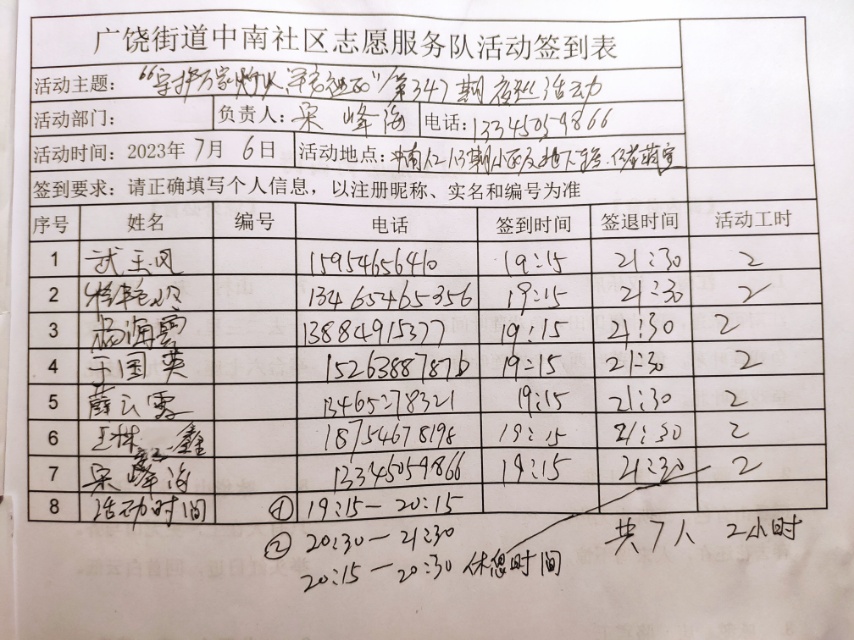 广饶街道中南社区志愿服务队活动签到表
活动主题：“守护万家灯火 /第347期夜巡活动
活动部门： 负责人：宋峰海 电话：13345059866
活动时间：2023年7月6日 活动地点：中南 1.2.13期小区及地下
签到要求：请正确填写个人信息，以注册昵称、实名和编号为准
序号 姓名 编号 电话 签到时间 签退时间 活动工时
1 武玉凤 15954656410 19:15 21:30 2
2 13465465356 19:15 21:30 2
3 杨海云 13884915377 19:15 21:30 2
4 于国英 1526388787 19:15 21:30 2
5 薛云霞 13465278321 19:15 21:30 2
6 王林 鑫 18754678198 19:15 21:30 2
7 宋峰海 13345059866 19:15 21:30 2
8 活动时间 ① 19:15－20:15
② 20:30－21:30 共7人 2小时
20:15－20:30 休息时间